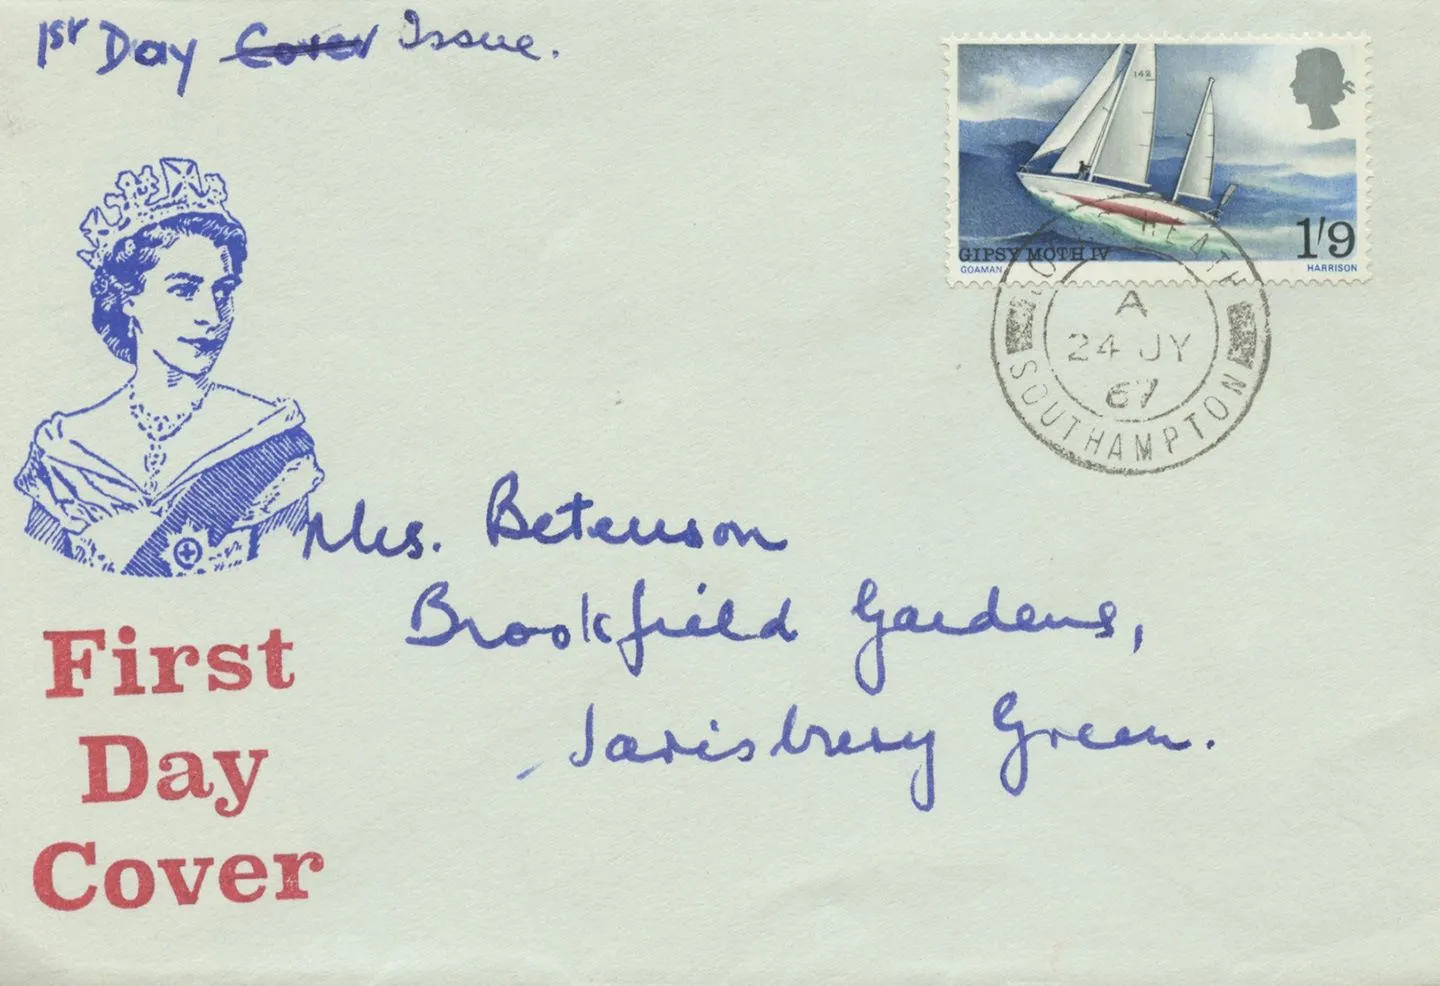 1st Day Cover Issue.
142
GIPSY MOTH IV
1/9
GOAMAN
HARRISON
LOCKS HEATH
A
24 JY
67
SOUTHAMPTON
Mrs. Betenson
Brookfield Gardens,
Sarisbury Green.
First
Day
Cover